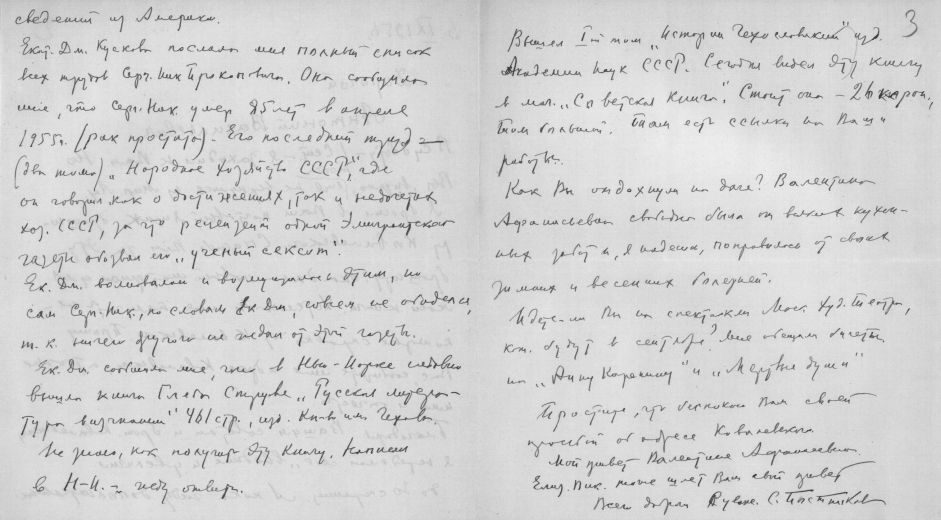 сведений из Америки.
Екат. Дм. Кускова послала мне полный список
всех трудов Серг. Ник Прокоповича. Она сообщила
мне, что Серг. Ник умер 85 лет в апреле
1955г. (рак простаты). Его последний труд —
(два тома) „Народное хозяйство СССР", где
он говорил как о достижениях, так и недочетах
хоз. СССР, за что рецензент одной эмигрантской
газеты обозвал его „ученый сексот".
Ек. Дм. волновалась и возмущалась этим, но
сам Серг. Ник, по словам Ек Дм, совсем не обиделся,
т. к. ничего другого не ждал от этой газеты.
Ек. Дм сообщила мне, что в Нью-Йорке недавно
вышла книга Глеба Струве „Русская литера-
тура в изгнании" 461 стр., изд. Кн-ва им. Чехова.
Не знаю, как получить эту книгу. Написал
в Н-Й. – жду ответа.
3
Вышел Iый том „Истории Чехословакии" изд.
Академии наук СССР. Сегодня видел эту книгу
в маг. „Советская книга". Стоит она – 26 корон,
том большой. Там есть ссылки на Ваши
работы.
Как Вы отдохнули на даче? Валентина
Афанасьевна свободна была от всяких кухон-
ных забот и, я надеюсь, поправилась от своих
зимних и весенних болезней.
Идете-ли Вы на спектакли Моск. Худ. Театра,
кот. будут в сентябре? Мне обещали билеты
на „Анну Каренину" и „Мертвые души"
Простите, что беспокою Вас своей
просьбой об адресе Ковалевского.
Мой привет Валентине Афанасьевне.
Елиз. Вик. тоже шлет Вам свой привет
Всего доброго С. Постников